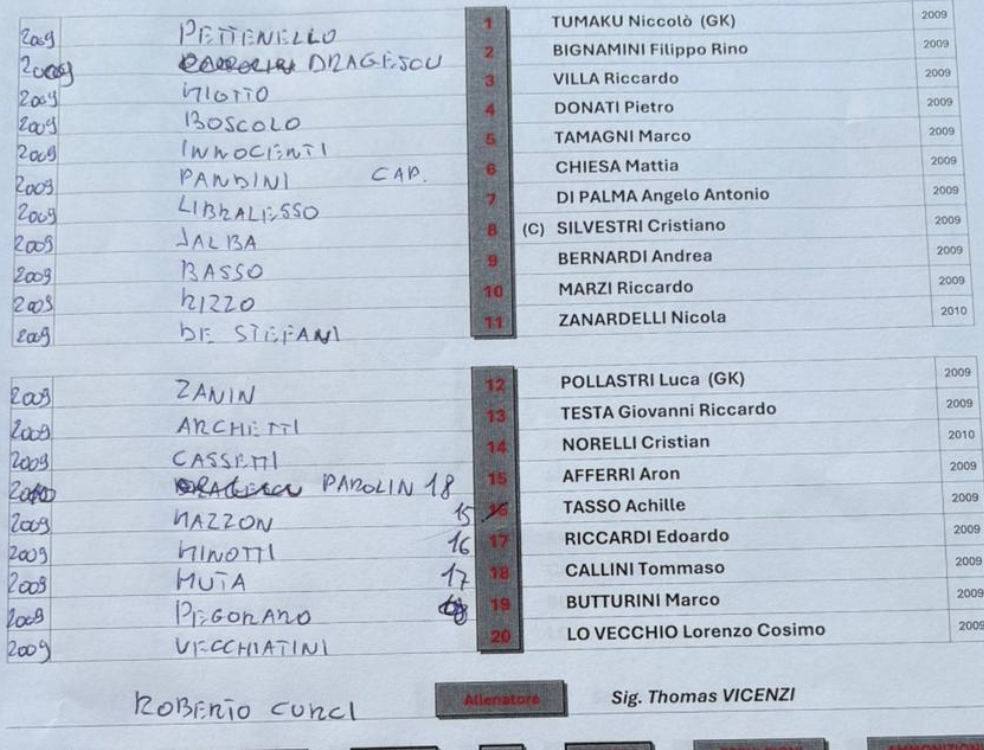 2009 PETTENELLO 1 TUMAKU Niccolò (GK) 2009
2009 DRAGESCU 2 BIGNAMINI Filippo Rino 2009
2009 MIOTTO 3 VILLA Riccardo 2009
2009 BOSCOLO 4 DONATI Pietro 2009
2009 INNOCENTI 5 TAMAGNI Marco 2009
2009 PANDINI CAP. 6 CHIESA Mattia 2009
2009 LIBRALESSO 7 DI PALMA Angelo Antonio 2009
2009 JALBA 8 (C) SILVESTRI Cristiano 2009
2009 BASSO 9 BERNARDI Andrea 2009
2009 RIZZO 10 MARZI Riccardo 2009
2009 DE STEFANI 11 ZANARDELLI Nicola 2010
2009 ZANIN 12 POLLASTRI Luca (GK) 2009
2009 ARCHETTI 13 TESTA Giovanni Riccardo 2009
2009 CASSETTI 14 NORELLI Cristian 2010
PAROLIN 18 15 AFFERRI Aron 2009
2009 MAZZON 15 16 TASSO Achille 2009
2009 MINOTTI 16 17 RICCARDI Edoardo 2009
2009 MUTA 17 18 CALLINI Tommaso 2009
2009 PEGORARO 19 BUTTURINI Marco 2009
2009 VECCHIATINI 20 LO VECCHIO Lorenzo Cosimo 2009
ROBERTO CURCI Allenatore Sig. Thomas VICENZI